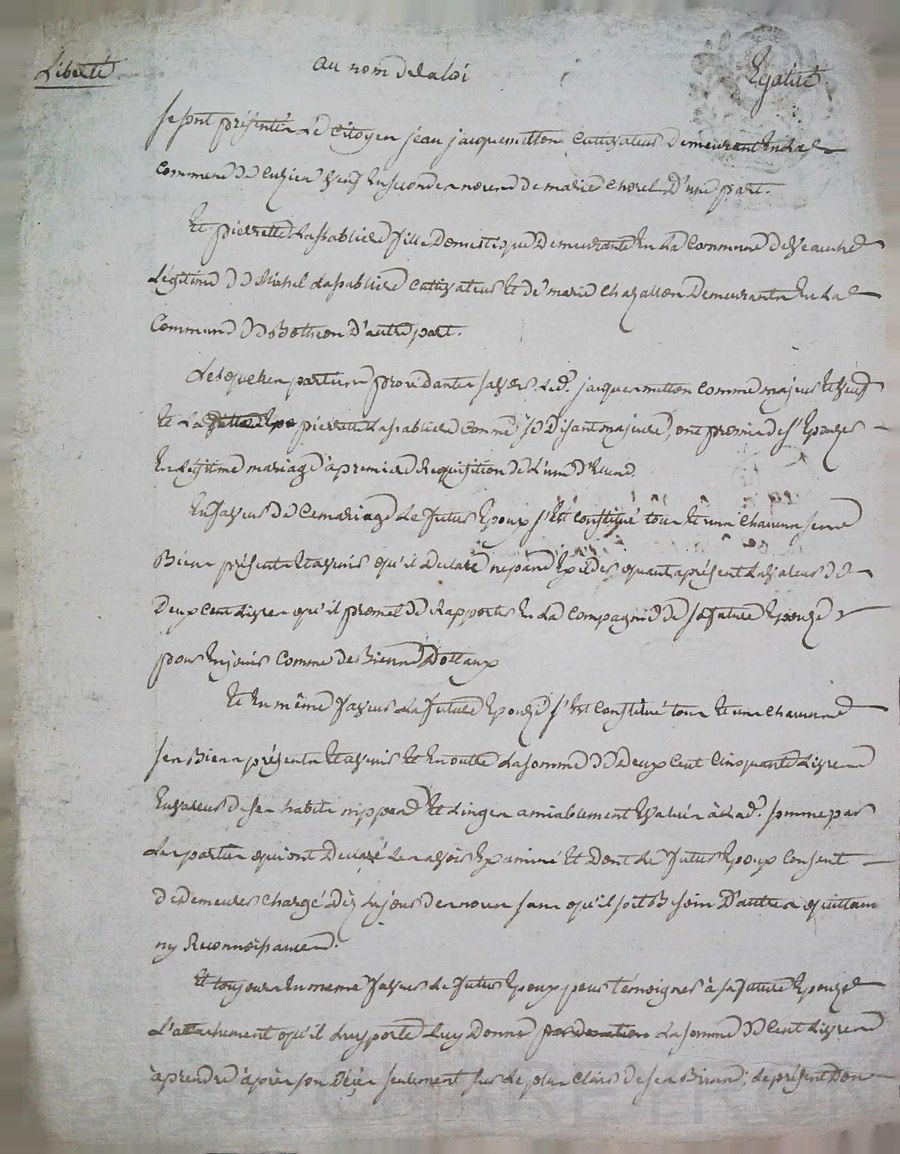 Liberté au nom de la loi Egalité
se sont présentés le Citoyen jean jacquemetton Cultivateur Demeurant En la
Commune de Cuzieu veuf En secondes noces de marie Chorel D'une part.
Et pierrette Lasabliere fille Domestique Demeurante En la Commune de Veauche
Légitime de Michel Lasabliere Cultivateur Et de marie Chazallon Demeurants En la
Commune de Bothéon D'autre part.
Lesquelles parties procedantes savoir Led. jacquemetton comme majeur Et veuf
Et La pierrette Lasabliere comme se Disant majeure, ont promis de s'Epouser
En légitime mariage a premiere Requisition de L'une D'Elles
En faveur de Ce mariage Le futur Epoux s'Est Constitué tous Et un Chacuns ses
Biens présents Et avenir qu'il Declare ne pas Exceder quant aprésent La valeur de
Deux Cent Livres qu'il promet de Rapporter En La Compagnie de sa future Epouze
pour En jouir Comme de Biens Dottaux
Et En même faveur La future Epouze s'Est Constitué tous Et un Chacuns
ses Biens présents Et avenir Et En outre La somme de Deux Cent Cinquante Livres
En valeur de ses habits nippes Et Linges amiablement Evalués à Lad. somme par
Les parties qui ont Declaré Les avoir Examiné Et Dont Le futur Epoux Consent
De Demeurer Chargé Dès Le jour des noces sans qu'il soit Besoin D'autres quittances
ny Reconnoissances.
Et toujours En meme faveur Le futur Epoux pour témoigner à sa future Epouze
L'attachement qu'il Luy porte Luy Donne par donation La somme de Cent Livres
à prendre après son Décès seulement sur Le plus Clair de ses Biens, Le présent Don